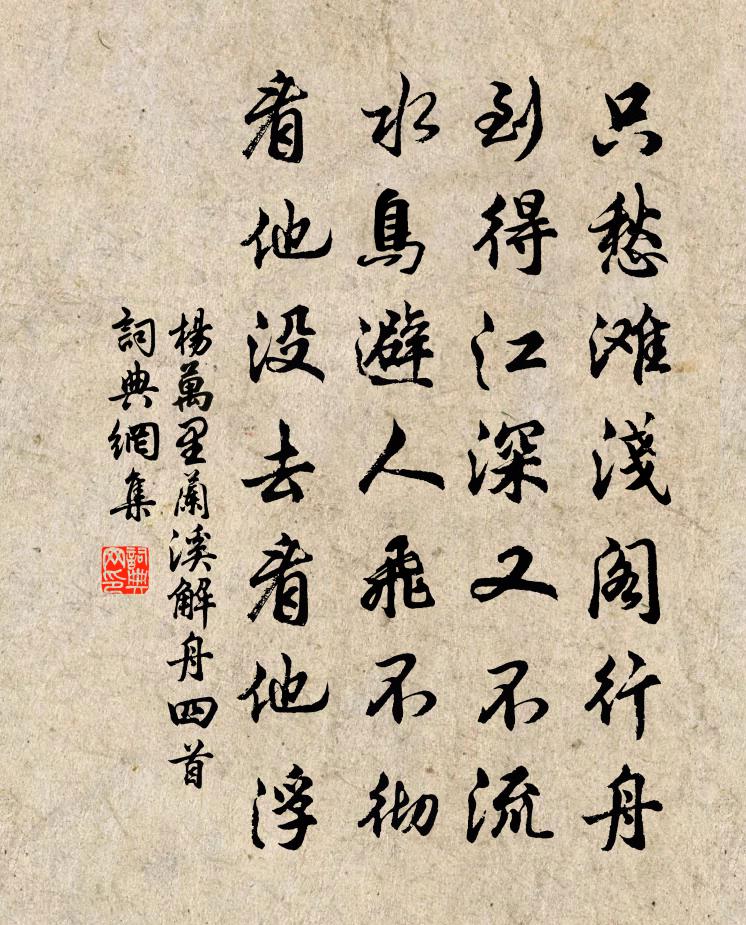 只愁滩淺阁行舟
到得江深又不流
水鳥避人飛不彻
看他没去看他浮
楊萬里蘭溪解舟四首
詞典網集
詞典
网印